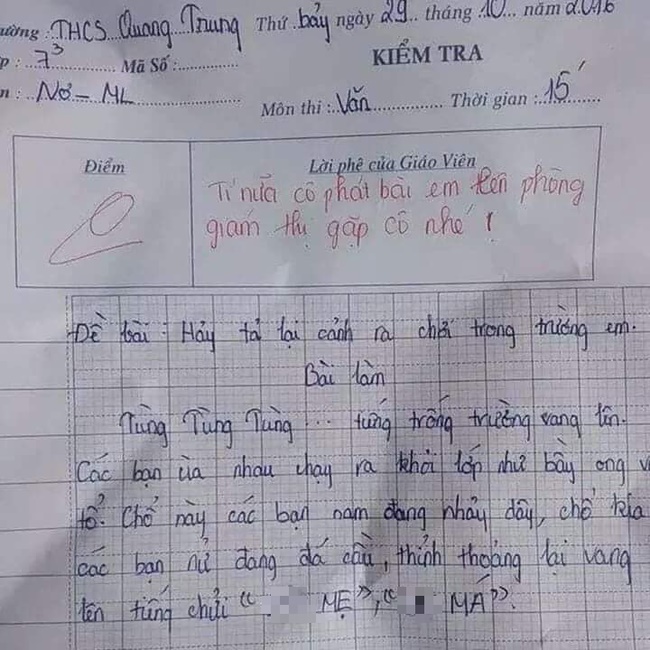 ường : THCS Quang Trung Thứ bảy ngày 29 tháng 10 năm 2016
p : 7³ Mã Số :
KIỂM TRA
n : Nơ - ML Môn thi : Văn Thời gian : 15'
Điểm
Lời phê của Giáo Viên
0
Tí nữa cô phát bài em lên phòng
giám thị gặp cô nhé !
Đề bài : Hảy tả lại cảnh ra chơi trong trường em.
Bài làm
Tùng Tùng Tùng ... tiếng trống trường vang lên.
Các bạn ùa nhau chạy ra khỏi lớp như bầy ong v
tổ. Chổ này các bạn nam đang nhảy dây, chổ kia
các bạn nử đang đá cầu, thỉnh thoảng lại vang
lên tiếng chửi " MẸ", " MÁ".